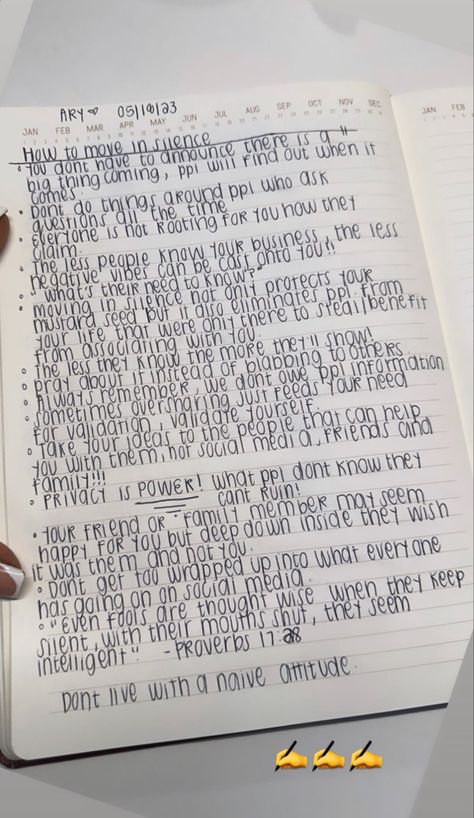 ARY♡ 05/10/23
JAN FEB MAR APR MAY JUN JUL AUG SEP OCT NOV DEC
JAN FEB
HOW to move in silence
• You dont have to announce there is a "
big thing coming, ppl will find out when it
comes.
• Dont do things around ppl who ask
questions all the time
• everyone is not rooting for you how they
claim.
• The less people know your business, the less
negative vibes can be cast onto you!!
• "what's their need to know?"
• moving in silence not only protects your
mustard seed but it also eliminates ppl from
your life that were only there to steal/benefit
from associating with you.
• The less they know the more they'll show!
• pray about it instead of blabbing to others.
• Always remember, we dont owe ppl information
• sometimes oversharing just feeds your need
for validation, validate yourself.
• Take your ideas to the people that can help
you with them, not social media, friends and
family!!!
• PRIVACY is POWER! What ppl dont know they
cant ruin!
• Your friend or family member may seem
happy for you but deep down inside they wish
it was them and not you.
• Dont get too wrapped up into what everyone
has going on on social media.
• "Even fools are thought wise when they keep
silent, with their mouths shut, they seem
intelligent" - Proverbs 17:28
Dont live with a naive attitude.
✍️✍️✍️